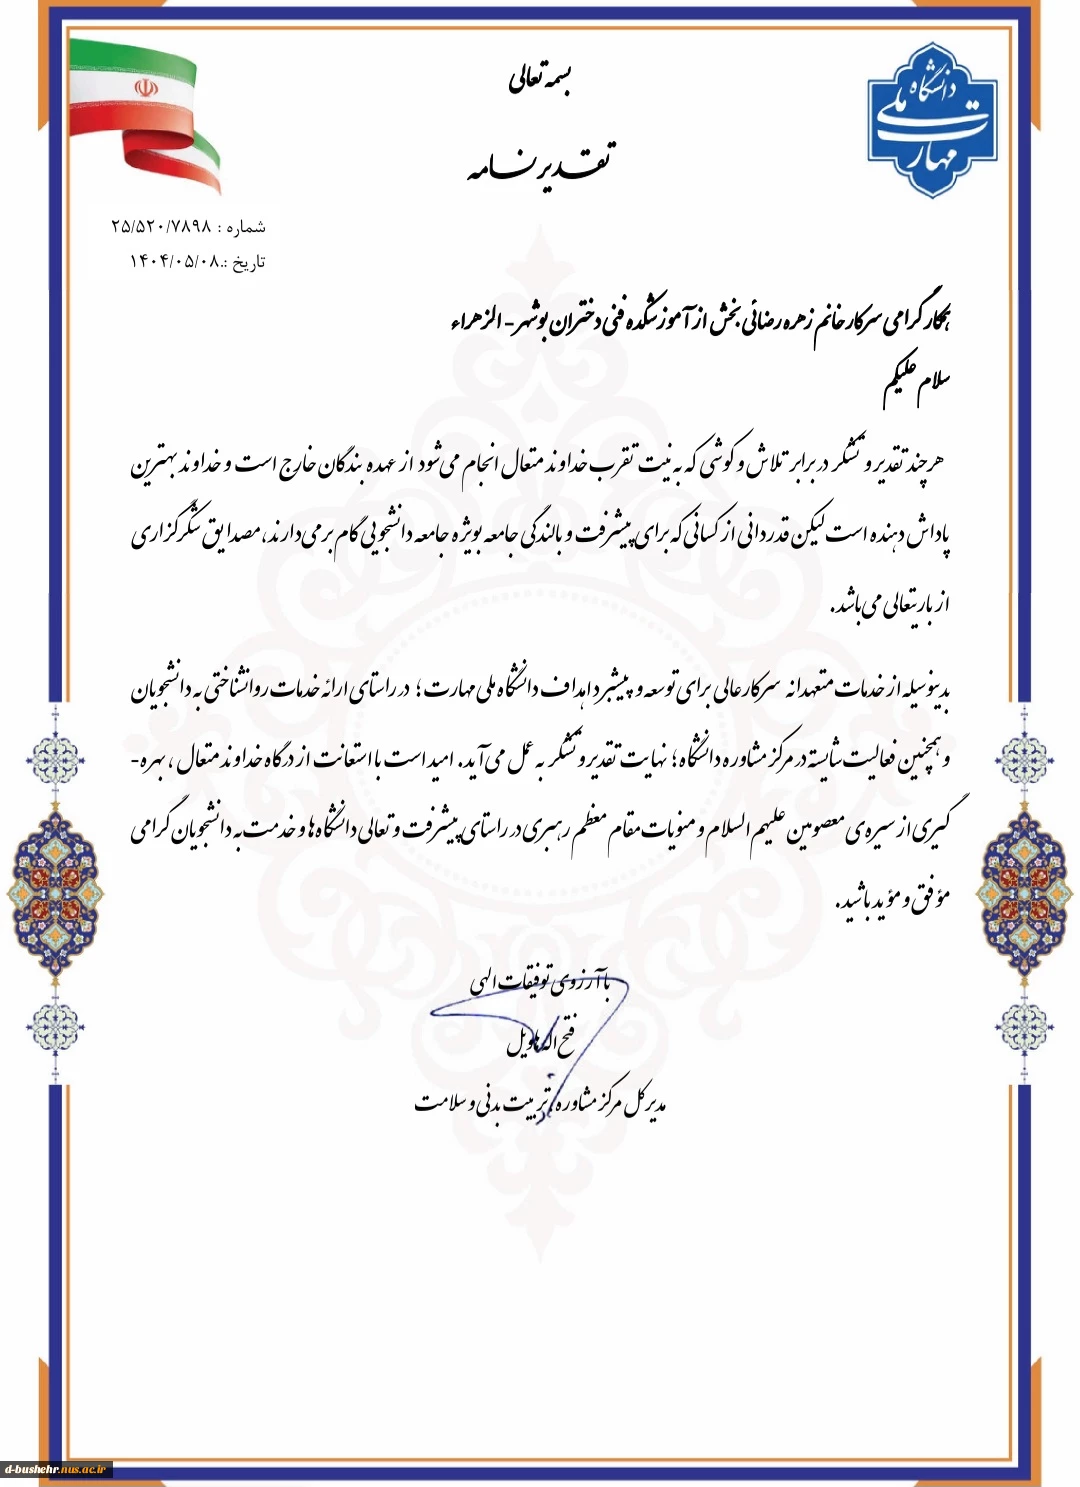 بسمه تعالی
دانشگاه
ملی
مهارت
تقدیرنامه
شماره : ۲۵/۵۲۰/۷۸۹۸
تاریخ :.۱۴۰۴/۰۵/۰۸
همکار گرامی سرکار خانم زهره رضائی بخش از آموزشکده فنی دختران بوشهر - الزهراء
سلام علیکم
هرچند تقدیر و تشکر در برابر تلاش و کوشی که به نیت تقرب خداوند متعال انجام می‌شود از عهده بندگان خارج است و خداوند بهترین
پاداش دهنده است لیکن قدردانی از کسانی که برای پیشرفت و بالندگی جامعه بویژه جامعه دانشجویی گام برمی‌دارند، مصدایق شکرگزاری
از باریتعالی می‌باشد.
بدینوسیله از خدمات متعهدانه سرکارعالی برای توسعه و پیشبرد اهداف دانشگاه ملی مهارت؛ در راستای ارائه خدمات روانشناختی به دانشجویان
و همچنین فعالیت شایسته در مرکز مشاوره دانشگاه؛ نهایت تقدیر و تشکر به عمل می‌آید. امید است با استعانت از درگاه خداوند متعال، بهره-
گیری از سیره‌ی معصومین علیهم السلام و منویات مقام معظم رهبری در راستای پیشرفت و تعالی دانشگاه ها و خدمت به دانشجویان گرامی
مؤفق و مؤید باشید.
با آرزوی توفیقات الهی
فتح اله هاویل
مدیرکل مرکز مشاوره، تربیت بدنی و سلامت
d-bushehr.nus.ac.ir